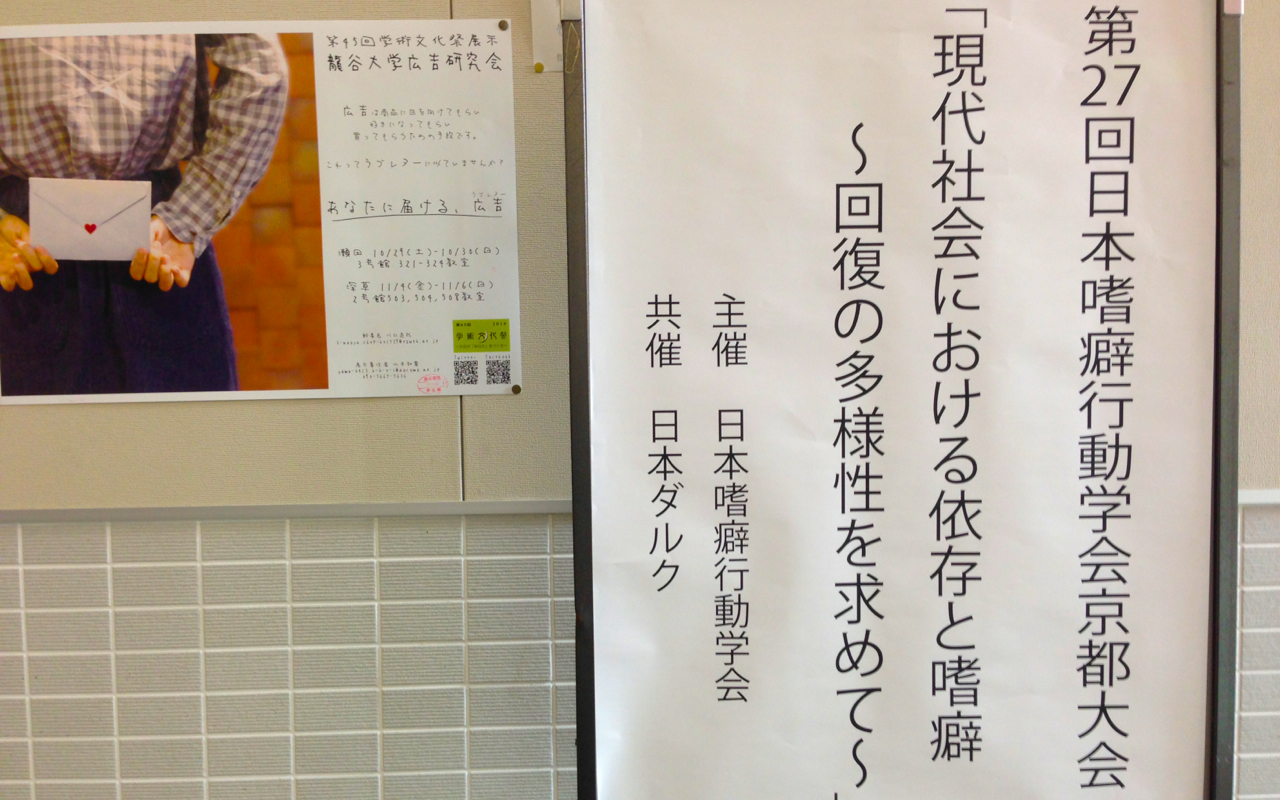 第27回日本嗜癖行動学会京都大会
「現代社会における依存と嗜癖
～回復の多様性を求めて～」
主催 日本嗜癖行動学会
共催 日本ダルク
第45回学術文化祭展示
龍谷大学広告研究会
広告は商品に目を向けてもらい
好きになってもらい
買ってもらうための手段です。
これってラブレターに似ていませんか?
あなたに届ける、広告
瀬田 10/29(土)-10/30(日)
3号館 321-324教室
深草 11/4(金)-11/6(日)
2号館503,504,508教室